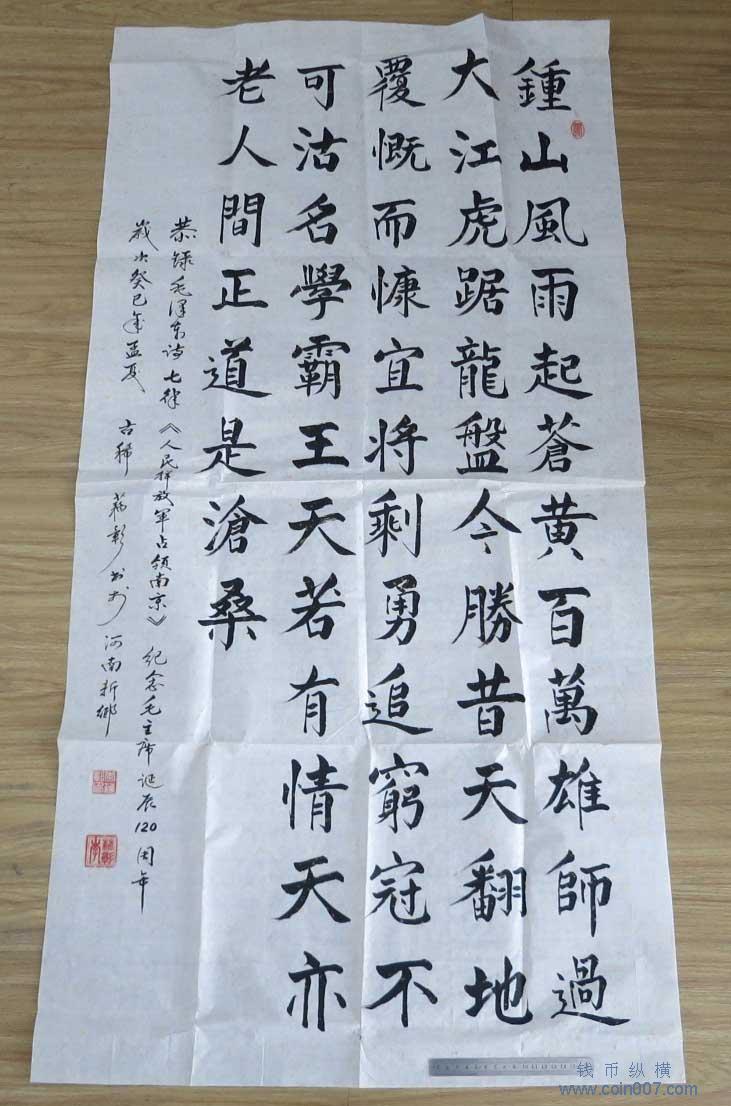 鍾山風雨起蒼黄百萬雄師過
大江虎踞龍盤今勝昔天翻地
覆慨而慷宜将剩勇追窮冠不
可沽名學霸王天若有情天亦
老人間正道是滄桑
恭録毛泽东诗七律《人民解放軍占领南京》纪念毛主席诞辰120周年
歲次癸巳年孟夏 古稀 书于河南新鄉
钱币纵横
www.coin007.com